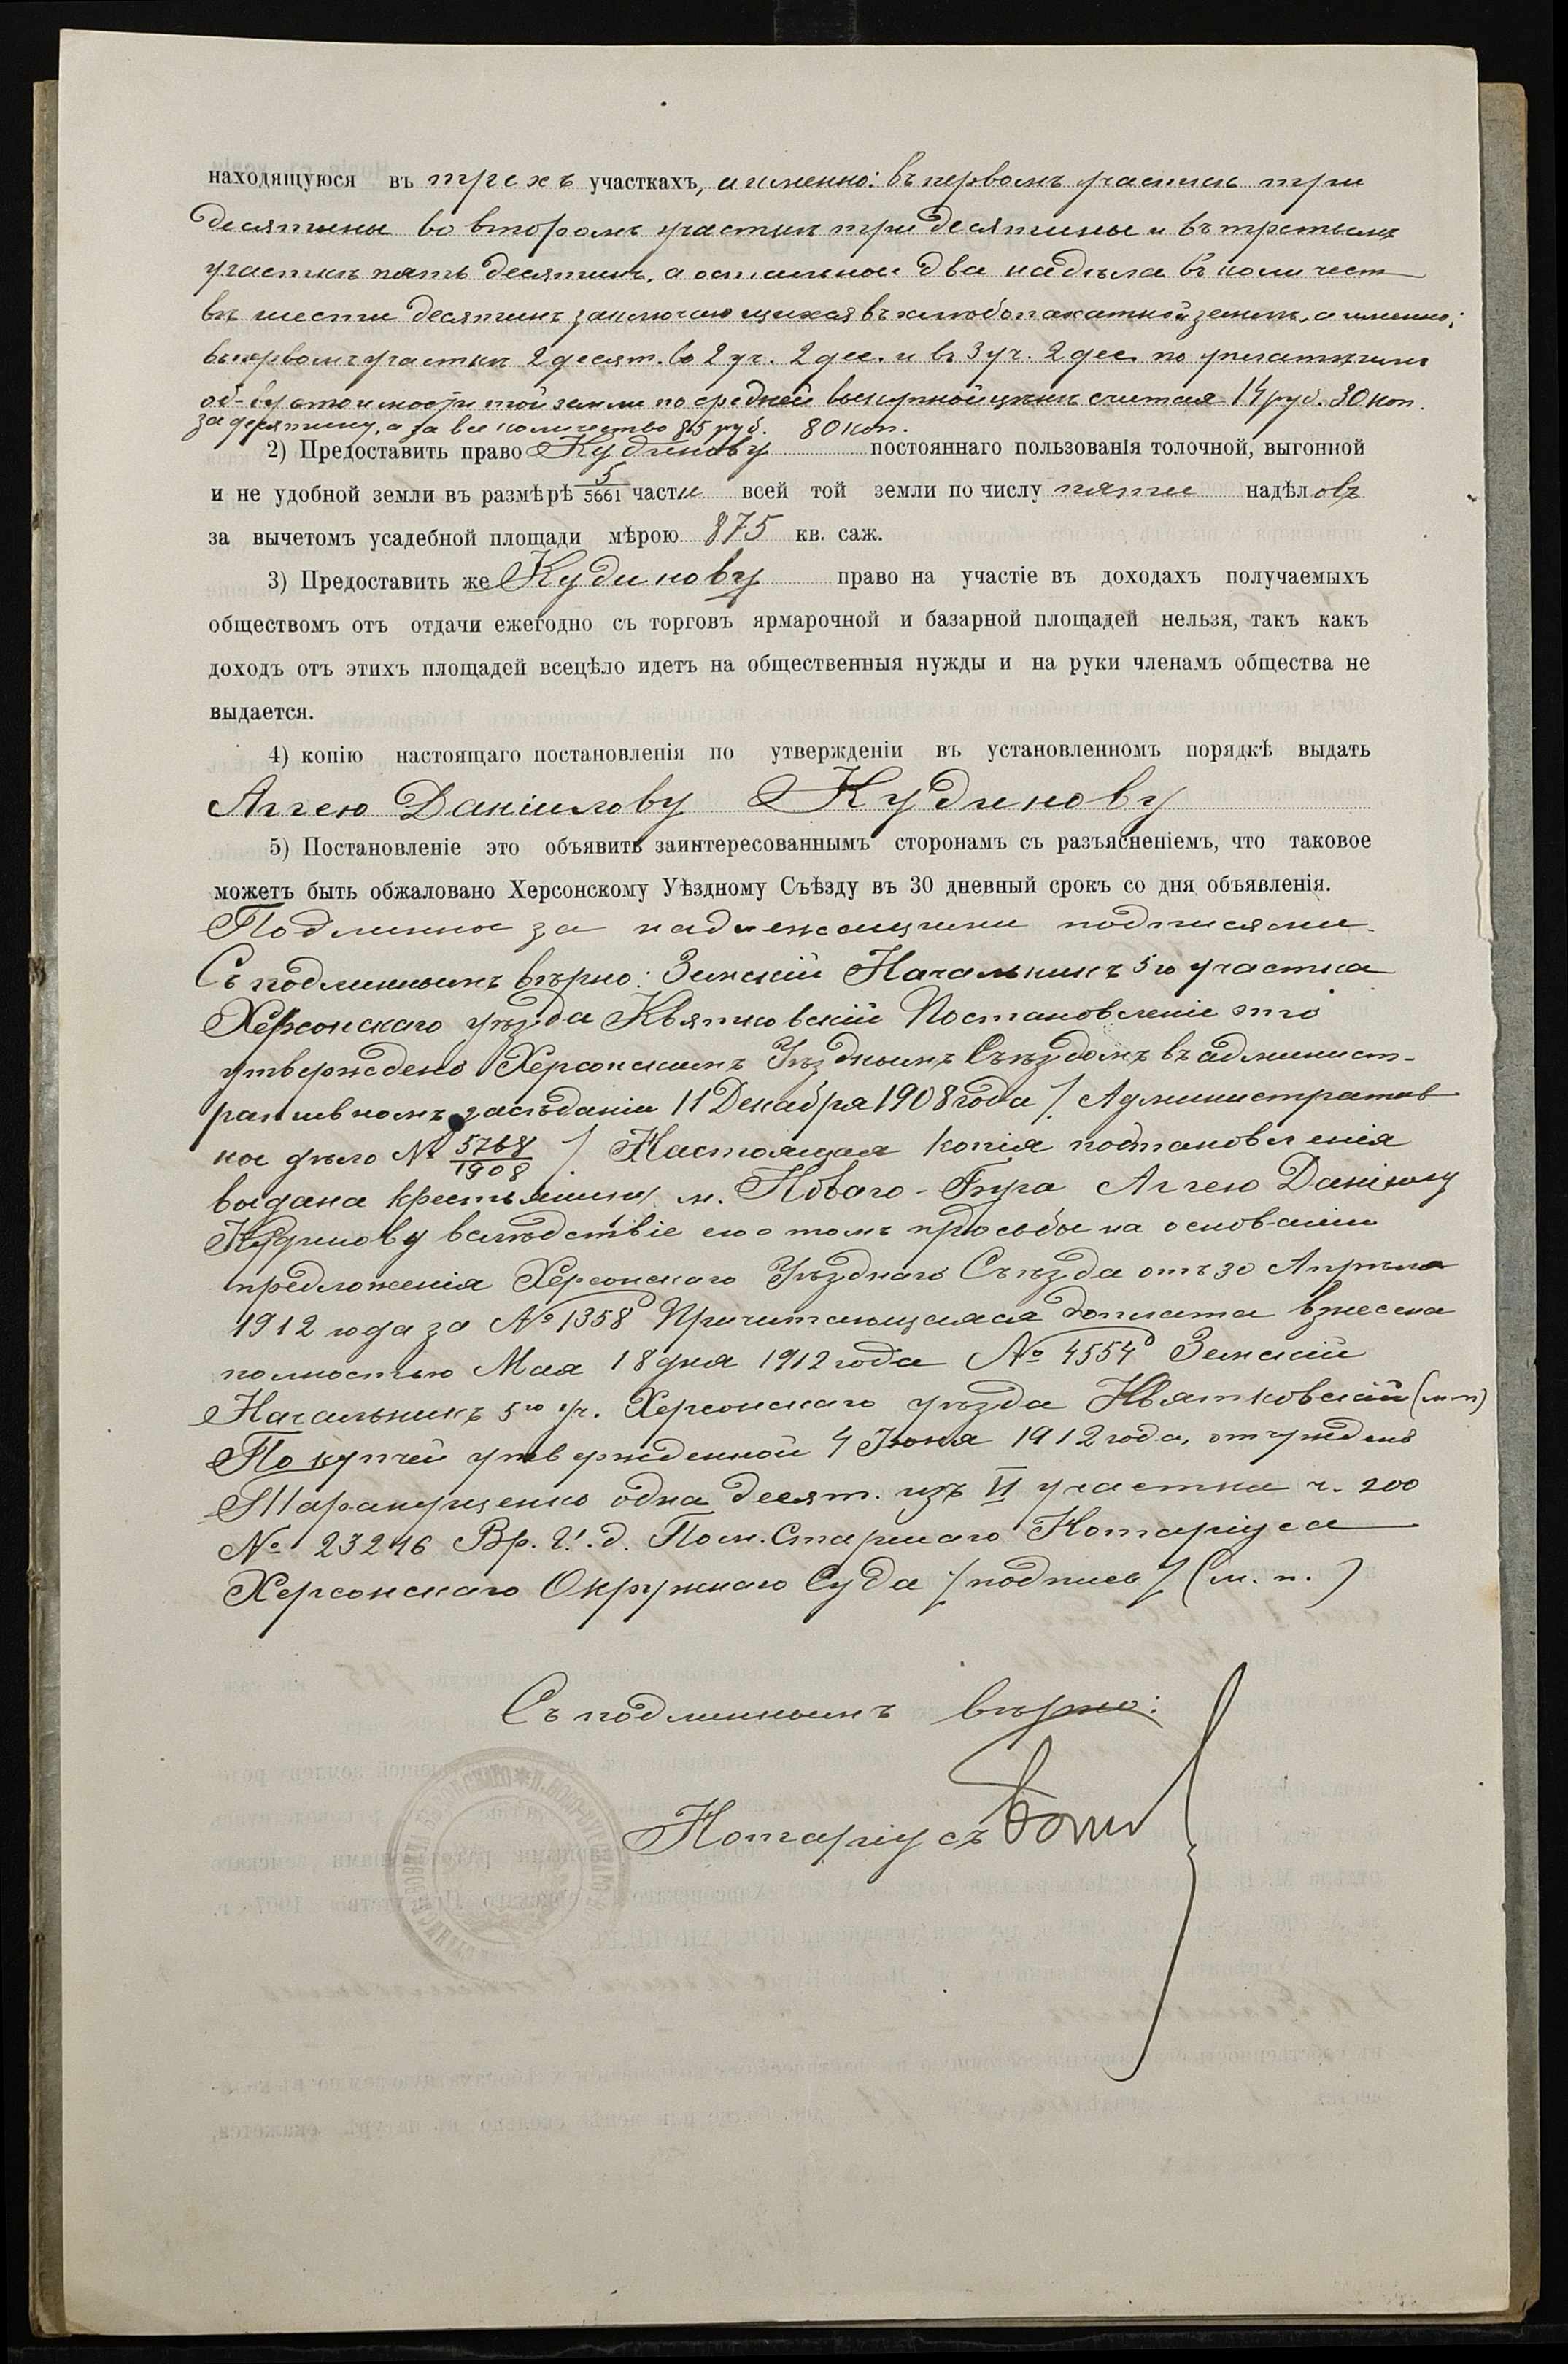 находящуюся въ трехъ участкахъ, а именно: въ первомъ участкѣ три
десятины во второмъ участкѣ три десятины и въ третьемъ
участкѣ пять десятинъ, а остальнои два надѣла въ количест
вѣ шести десятинъ заключающихся въ хлѣбопахатной землѣ, а именно:
въ первомъ участкѣ 2 десят. во 2 уч. 2 дес. и въ 3 уч. 2 дес. по уплатѣ имъ
об-ву стоимости той земли по средней выкупной цѣнѣ считая 14 руб. 30 коп.
за десятину, а за все количество 85 руб. 80 коп.
2) Предоставить право Кудинову постояннаго пользованія толочной, выгонной
и не удобной земли въ размѣрѣ 5/5661 части всей той земли по числу пяти надѣловъ
за вычетомъ усадебной площади мѣрою 875 кв. саж.
3) Предоставить же Кудинову право на участіе въ доходахъ получаемыхъ
обществомъ отъ отдачи ежегодно съ торговъ ярмарочной и базарной площадей нельзя, такъ какъ
доходъ отъ этихъ площадей всецѣло идетъ на общественныя нужды и на руки членамъ общества не
выдается.
4) копію настоящаго постановленія по утвержденіи въ установленномъ порядкѣ выдать
Аггею Даніилову Кудинову
5) Постановленіе это объявить заинтересованнымъ сторонамъ съ разъясненіемъ, что таковое
можетъ быть обжаловано Херсонскому Уѣздному Съѣзду въ 30 дневный срокъ со дня объявленія.
Подлинное за надлежащими подписями.
Съ подлиннымъ вѣрно: Земскій Начальникъ 5го участка
Херсонскаго уѣзда Квятковскій Постановленіе это
утверждено Херсонскимъ Уѣзднымъ Съѣздомъ въ админист-
ративномъ засѣданіи 11 Декабря 1908 года /. Административ
ное дѣло № 5768/1908 /. Настоящая копія постановленія
выдана крестьянину м. Новаго-Буга Аггею Данілову
Кудинову вслѣдствіе его о томъ просьбы на основаніи
предложенія Херсонскаго Уѣзднаго Съѣзда отъ 30 Апрѣля
1912 года за № 1358 Причитающаяся доплата внесена
полностью Мая 18 дня 1912 года № 4554 Земскій
Начальникъ 5го уч. Херсонскаго уѣзда Квятковскій (м п)
По купчей утвержденной 4 Іюня 1912 года, отчуждено
Таранущенко одна десят. изъ VI участка ч. 200
№ 23246 Вр. И. д. Пом. Старшаго Нотаріуса
Херсонскаго Окружнаго Суда /подпись/ (м. п.)
Съ подлиннымъ вѣрно:
Нотаріусъ